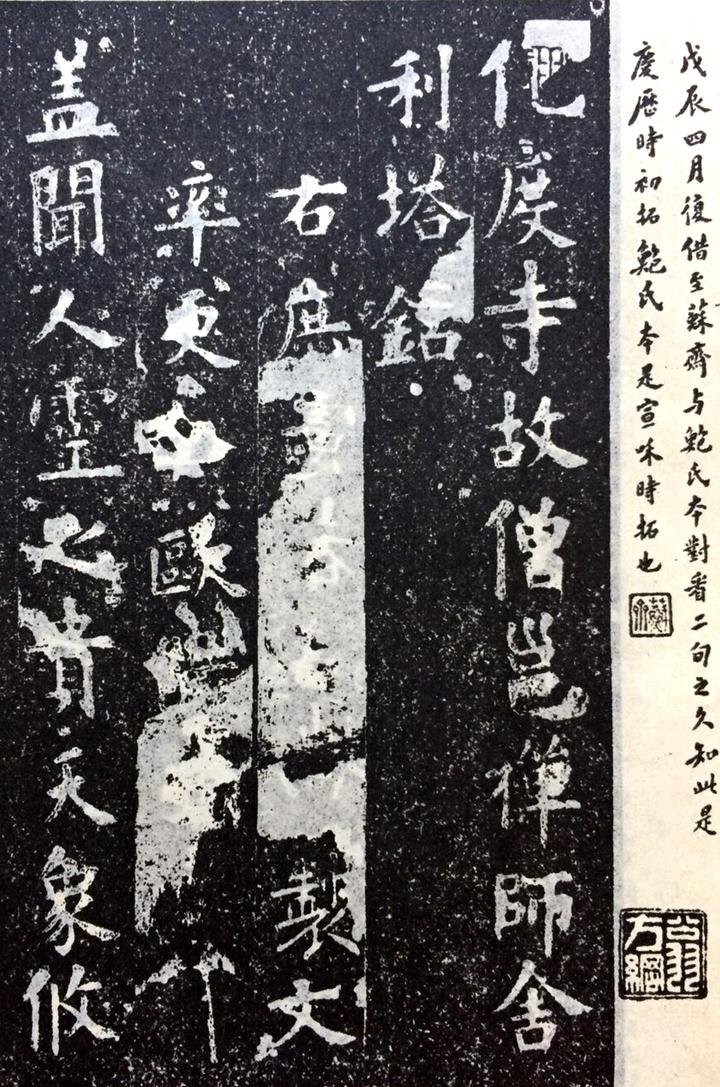 戊辰四月復借至蘇齋与鮑氏本對看二旬之久知此是
慶歷時初拓鮑氏本是宣咊時拓也
翁方綱
化度寺故僧邕禅師舍
利塔銘
右庶製文
率更歐
盖聞人靈之貴天象攸